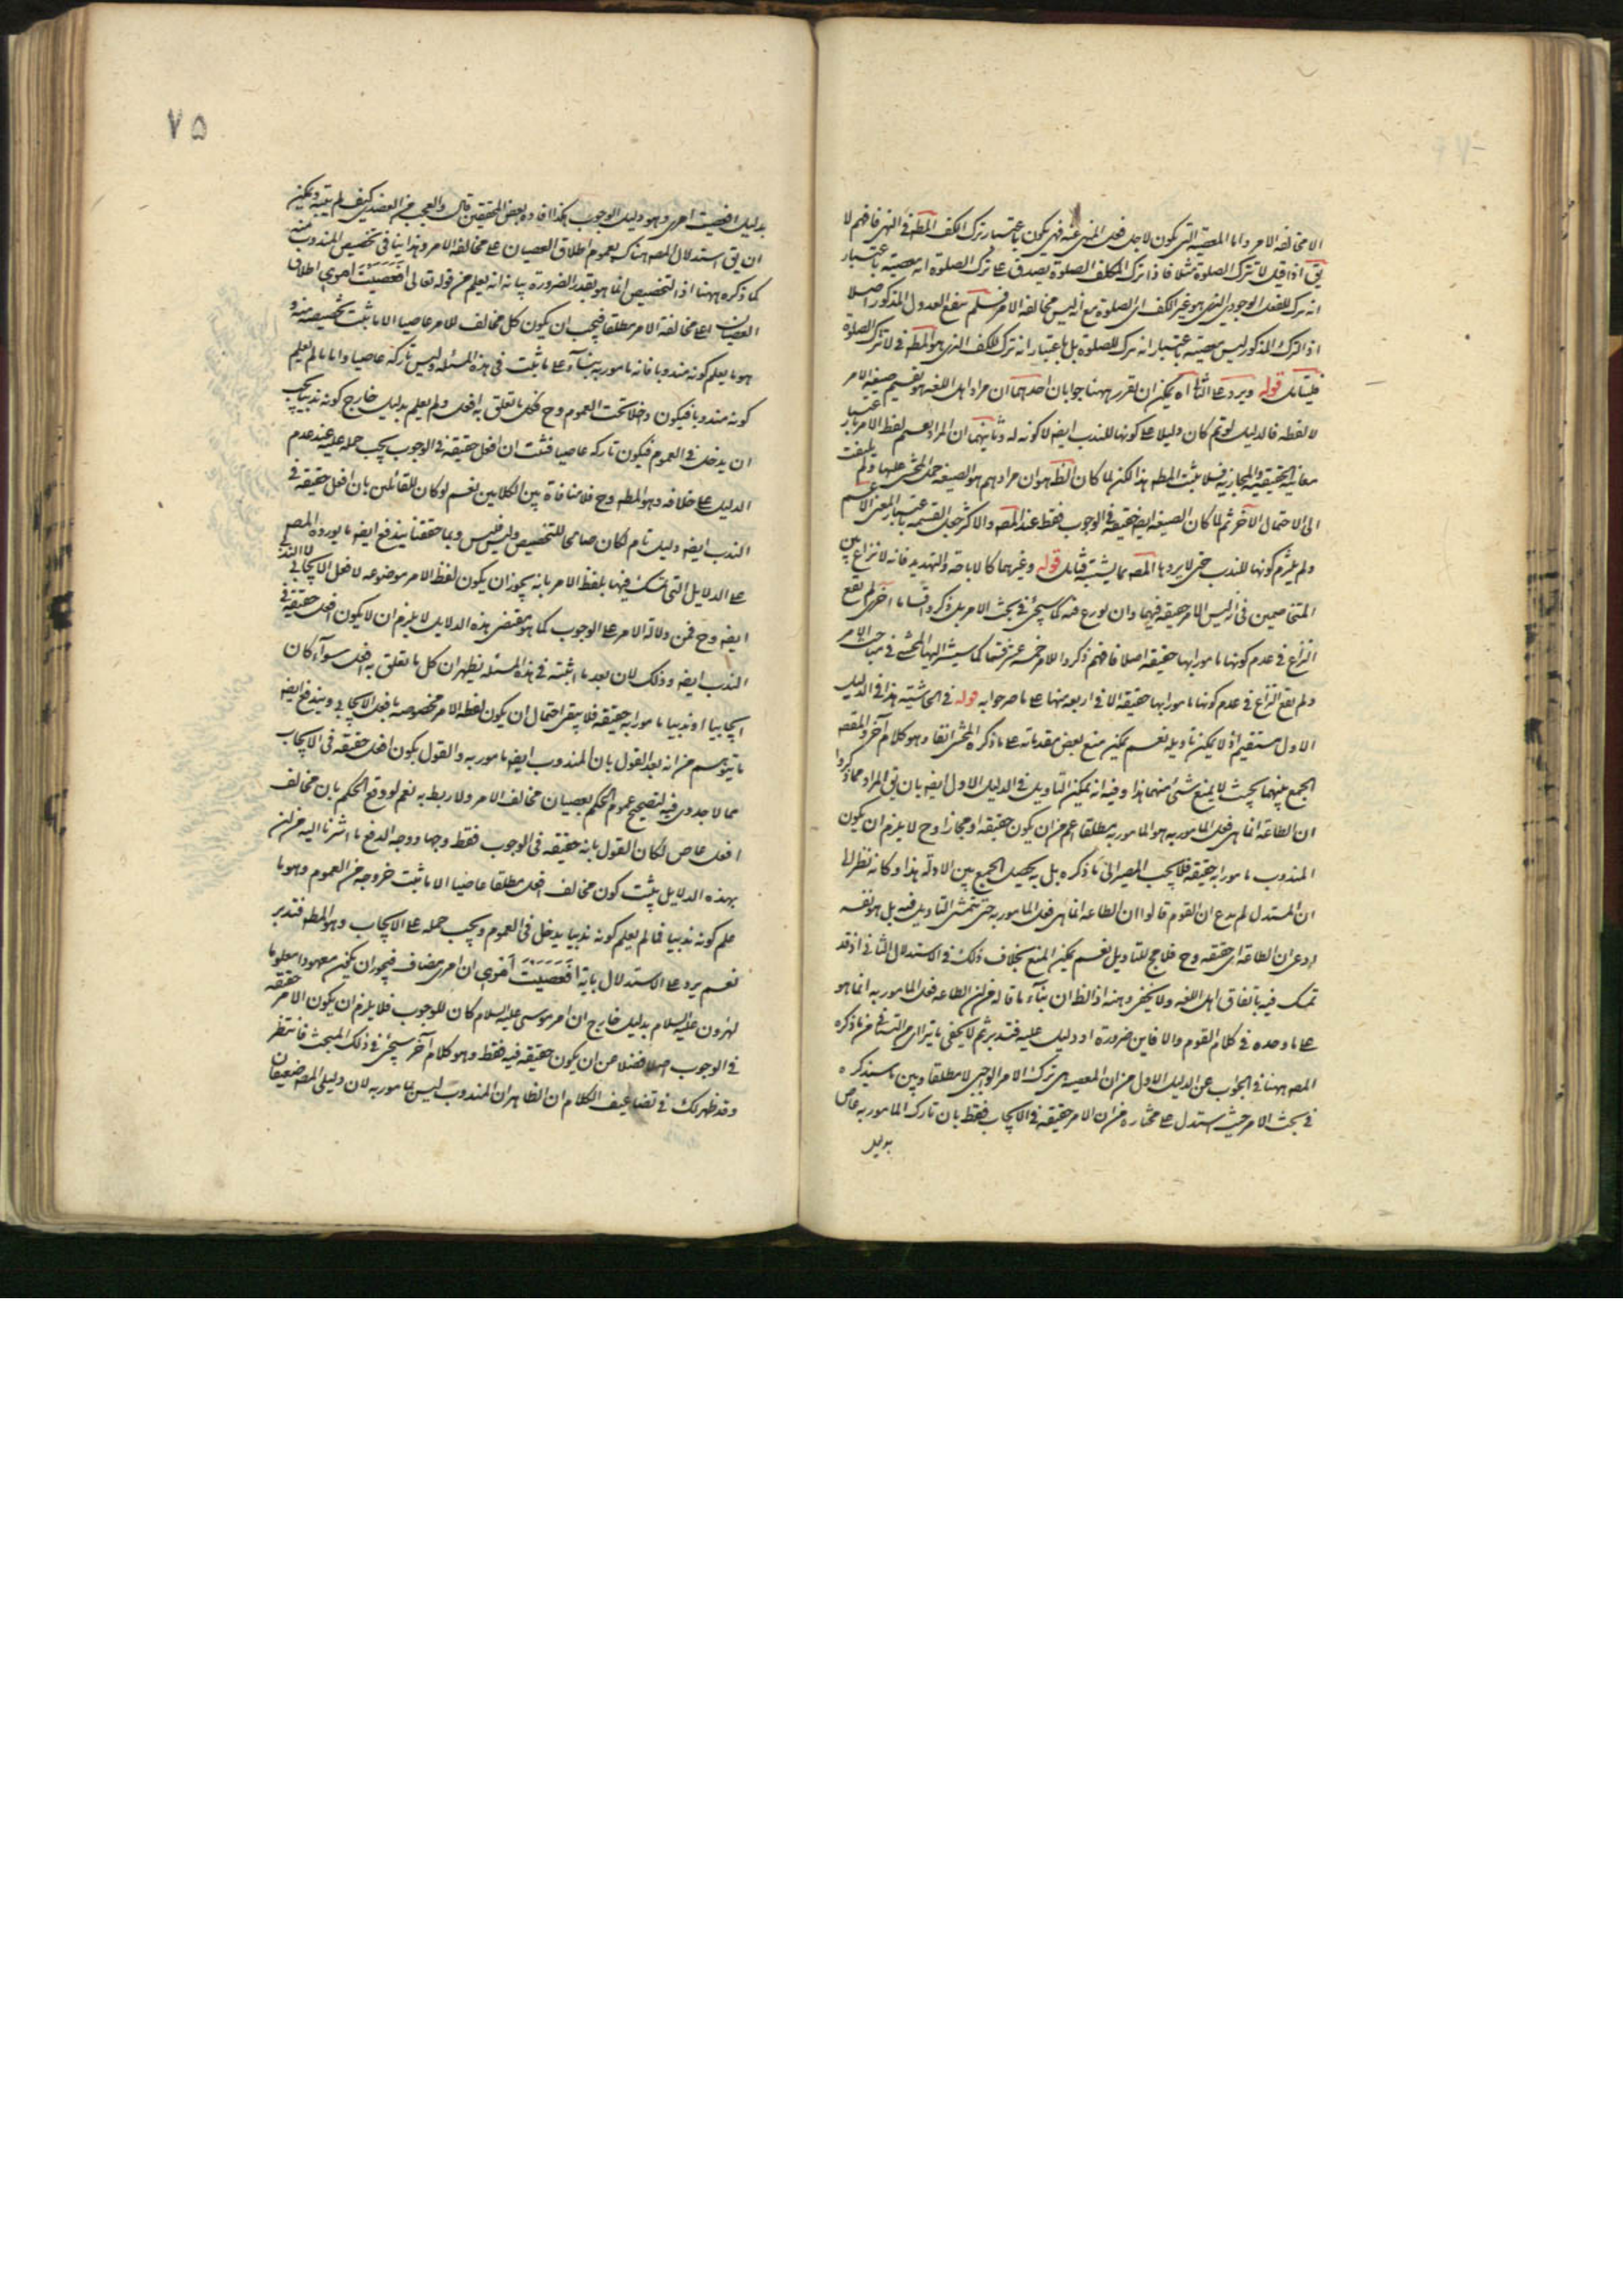 الا مخالفة الامر واما المعصية التى يكون لاجل فعل المنهى عنه فهى يكون باعتبار ترك الكف المطه فى النهى فافهم لا
يق اذا قيل لا تترك الصلوة مثلا فاذا ترك المكلف الصلوة يصدق على ترك الصلوة انه معصية باعتبار
انه ترك للفعل الوجودى الذى هو غير الكف اى الصلوة مع انه ليس مخالفة الامر فلم ينفع العدول المذكور اصلا
اذ الترك المذكور ليس معصية باعتبار انه ترك للصلوة بل باعتبار انه ترك للكف الذى هو المطه فى لا تترك الصلوة
فليتامل قوله ويرد على الثانى اه يمكن ان يقرر ههنا جوابان احدهما ان مراد اهل اللغة هو تقسيم صيغة الامر
لا لفظه فالدليل لو تم كان دليلا على كونها للندب ايضه لا كونه له وثانيهما ان المراد تقسيم لفظ الامر باعتبار
معانيه الحقيقية والمجازية فلا يثبت المطه هذا لكن لما كان الظه هو ان مرادهم هو الصيغة حمل المحشى عليها ولم يلتفت
الى الاحتمال الآخر ثم لما كان الصيغة ايضه حقيقة فى الوجوب فقط عند المصه والاكثر جعل القسمة باعتبار المعنى الاعم
ولم يلتزم كونها للندب حتى لا يرد ما المصه بما يشيبه فتامل قوله وغيرهما كالاباحة والتهديد فانه لا نزاع بين
المتخاصمين فى انه ليس الامر حقيقة فيهما وان نوزع فيه كما سيجئ فى بحث الامر بل ذكروا اقساما اخرى لم يقع
النزاع فى عدم كونها مامورا بها حقيقة اصلا فافهم ذكروا للامر خمسة عشر قسما كما سيشير اليها المحشى فى مباحث الامر
ولم يقع النزاع فى عدم كونها مامورا بها حقيقة الا فى اربعة منها على ما صرحوا به قوله فى الحاشية هذا فى الدليل
الاول مستقيم اذ لا يمكن تاويله نعم يمكن منع بعض مقدماته على ما ذكره المحشى انفا وهو كلام آخر والمقصه
الجمع بينهما بحيث لا يمنع شئ منهما هذا وفيه انه يمكن التاويل فى الدليل الاول ايضه بان يق المراد مما ذكروا
ان الطاعة انما هى فعل المامور به هو المامور به مطلقا اعم من ان يكون حقيقة او مجازا وح لا يلزم ان يكون
المندوب مامورا به حقيقة فلا يجب المصير الى ما ذكره بل به يحصل الجمع بين الادلة هذا وكانه نظر الى
ان المستدل لم يدع ان القوم قالوا ان الطاعة انما هى فعل المامور به حتى يتمشى التاويل فيه بل هو نفسه
ادعى ان الطاعة اى حقيقة وح فلا مج للتاويل نعم يمكن المنع بخلاف ذلك فى الاستدلال الثانى اذ قد
تمسك فيه باتفاق اهل اللغة ولا يخفى وهنه اذ الظه ان بناء ما قاله من ان الطاعة فعل المامور به انما هو
على ما وجده فى كلام القوم والا فاين ضرورة او دليل عليه فتدبر ثم لا يخفى ما يتراى من التنافى من ما ذكره
المصه ههنا فى الجواب عن الدليل الاول من ان المعصية هى ترك الامر الوجبى لا مطلقا وبين ما سيذكره
فى بحث الامر حيث استدل على مختاره من ان الامر حقيقة فى الايجاب فقط بان تارك المامور به عاص
بدليل
٧۵
بدليل افعصيت امرى وهو دليل الوجوب هكذا افاده بعض المحققين قال والعجب من العضدى كيف لم يتنبه ويمكن
ان يق استدلال المصه هناك بعموم اطلاق العصيان على مخالفة الامر وهذا ينافى تخصيص المندوب منه
كما ذكره ههنا اذ التخصيص انما هو بقدر الضرورة بيانه انه يعلم من قوله تعالى افعصيت امرى اطلاق
العصيان على مخالفة الامر مطلقا فيجب ان يكون كل مخالف للامر عاصيا الا ما ثبت تخصيصه منه و
هو ما يعلم كونه مندوبا فانه مامور به بناء على ما ثبت فى هذه المسئلة وليس تاركه عاصيا واما ما لم يعلم
كونه مندوبا فيكون داخلا تحت العموم وح فكل ما تعلق به افعل ولم يعلم بدليل خارج كونه ندبيا يجب
ان يدخل فى العموم فيكون تاركه عاصيا فثبت ان افعل حقيقة فى الوجوب يجب حمله عليه عند عدم
الدليل على خلافه وهو المطه وح فلا منافاة بين الكلامين نعم لو كان للقائلين بان افعل حقيقة فى
الندب ايضه دليل تام لكان صالحا للتخصيص وليس فليس وبما حققنا يندفع ايضه ما يورده المصه
على الدلايل التى تمسك فيها بلفظ الامر بانه يجوز ان يكون لفظ الامر موضوعه لافعل الايجابى لا الندبى
ايضه وح فمن دلالة الامر على الوجوب كما هو مقتضى هذه الدلايل لا يلزم ان لا يكون افعل حقيقة فى
الندب ايضه وذلك لان بعد ما اثبته فى هذه المسئلة يظهر ان كل ما تعلق به افعل سواء كان
ايجابيا او ندبيا مامورا به حقيقة فلا يبقى احتمال ان يكون لفظة الامر مخصوصة بافعل الايجابى ويندفع ايضه
ما يتوهم من انه بعد القول بان المندوب ايضه مامور به والقول بكون افعل حقيقة فى الايجاب
مما لا جدوى فيه لتصحيح عموم الحكم بعصيان مخالف الامر ولا ربط به نعم لو وقع الحكم بان مخالف
افعل عاص لكان القول بانه حقيقة فى الوجوب فقط وجها ووجه الدفع ما اشرنا اليه من ان
بهذه الدلايل يثبت كون مخالف افعل مطلقا عاصيا الا ما ثبت خروجه من العموم وهو ما
علم كونه ندبيا فما لم يعلم كونه ندبيا يدخل فى العموم ويجب حمله على الايجاب وهو المطه فتدبر
نعم يرد على الاستدلال بآية افعصيت امرى ان امرى مضاف فيجوز ان يكون معهودا معلوما
لهرون عليه السلام بدليل خارج ان امر موسى عليه السلام كان للوجوب فلا يلزم ان يكون الامر حقيقة
فى الوجوب اصلا فضلا من ان يكون حقيقة فيه فقط وهو كلام آخر سيجئ فى ذلك المبحث فانتظر
وقد ظهر لك فى تضاعيف الكلام ان الظاهر ان المندوب ليس بمامور به لان دليلى المصه ضعيفان